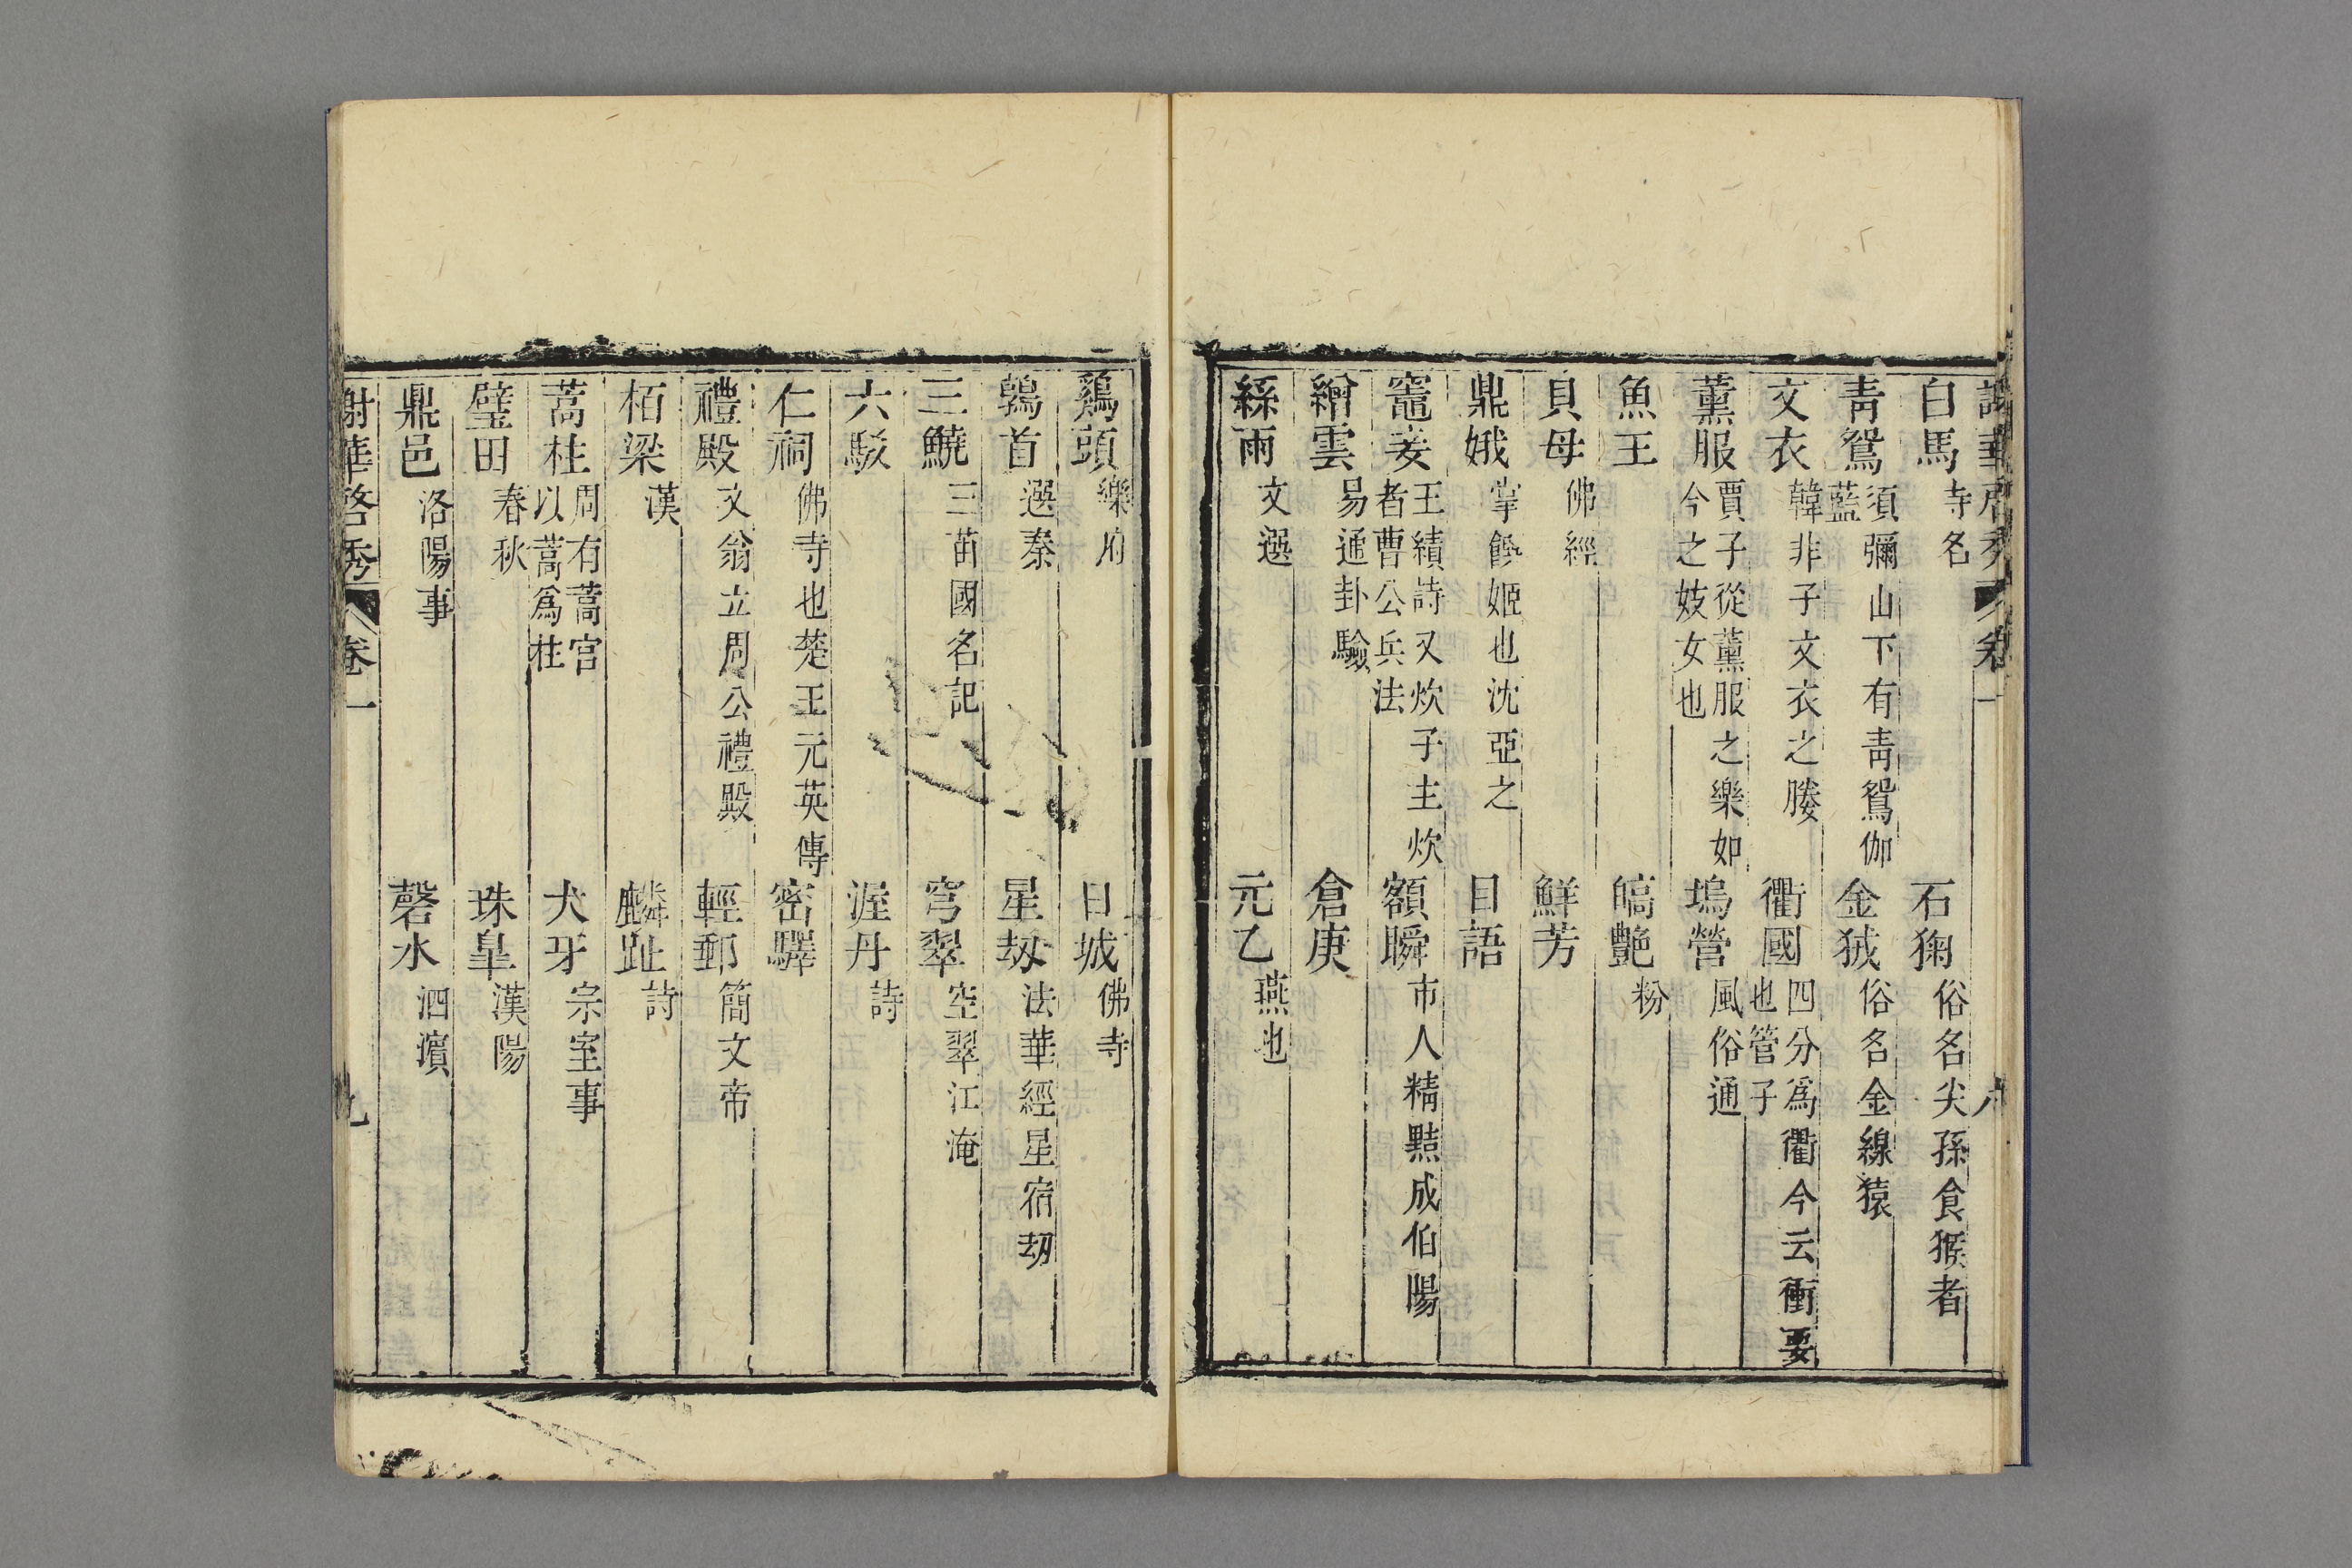 謝華啓秀 卷一 八
白馬 寺名 石㺃 俗名尖孫食猴者
靑鴛 須彌山下有靑鴛伽藍 金狨 俗名金線猿
文衣 韓非子文衣之媵 衢國 四分爲衢今云衝要也管子
薰服 賈子從薰服之樂如今之妓女也 塢營 風俗通
魚王 皜艷 粉
貝母 佛經 鮮芳
鼎娥 掌飮姬也沈亞之 目語
竈妾 王績詩又炊子主炊者曹公兵法 額瞬 市人精黠成伯陽
繒雲 易通卦驗 倉庚
絲雨 文選 元乙 燕也
鷄頭 樂府 日城 佛寺
鶉首 選秦 星刧 法華經星宿刧
三鱙 三苗國名記 穹翠 空翠江淹
六駁 渥丹 詩
仁祠 佛寺也楚王元英傳 密驛
禮殿 文翁立周公禮殿 輕郵 簡文帝
栢梁 漢 麟趾 詩
蒿柱 周有蒿宫以蒿爲柱 犬牙 宗室事
璧田 春秋 珠皐 漢陽
鼎邑 洛陽事 磬水 泗濵
謝華啓秀 卷一 九